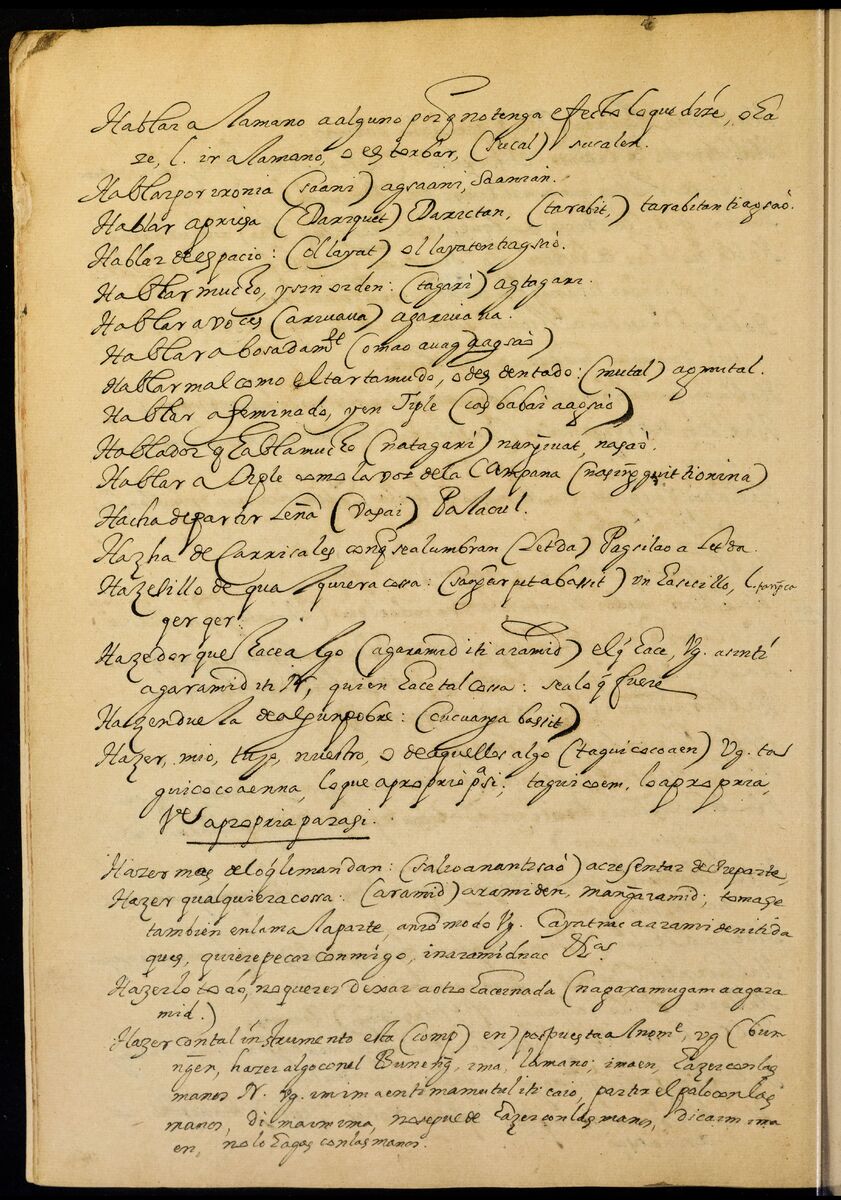 Hablar a lamano a alguno porq̃ no tenga efecto lo que dize, o ha
ze, l. ir a lamano, o estorbar, (sucal) sucalen.
Hablar por ironia (saani) agsaani, saanian.
Hablar apriesa (Dariquet) Darictan, (tarabit,) tarabitan tiagsaò.
Hablar de espacio: (ollayat) ollayaten tiagsaò.
Hablar mucho, y sin orden: (tagari) agtagari.
Hablar a voces (ariuaua) agariuaua.
Hablar abosadamte (omao auag agsaò)
Hablar mal como el tartamudo, o des dentado: (mutal) agmutal.
Hablar afeminado, y en Tiple (cas babai aagsaò)
Hablador q̃ habla mucho (natagari) nasaò.
Hablar a tiple como la voz de la Campana
Hacha de partir Leña (Vasai) Palacúl.
Hazha de Carricales conq̃ se alumbran (Letda) Pagsilao a Letda.
Hazesillo de qualquiera cossa: bassit) un hasecillo, l.
ger ger.
Hazedor que haze algo (agaramid iti aramid) el q̃ haze, Vg. asinti
agaramid iti N, quien haze tal cossa: sea lo q̃ fuere
Hazienduela de algun pobre: (cucua bassit)
Hazer, mio, tuyo, nuestro, o de aquellos algo (taguicocoaen) Vg. ta
guicocoaenna, lo que aproprio psi; taguicoem, lo apropria,
Ve apropria para si.
Hazer mas de lo q̃ le mandan: acresentar de su parte,
Hazer qualquiera cossa: (aramid) aramiden, mangaramid; tomase
tambien en la mala parte, a nro modo Vg. Cayatnac a aramiden itida
ques, quiere pecar conmigo, inaramidnac &as.
Hazerlo todo, no querer dexar a otro haser nada (nagaramugam a agara
mid.)
Hazer con tal instrumento esta (comp) en) pospuesta al nome, vg (bu
ngen, hazer algo con el Buneng, ima, la mano; imaen, hazer con las
manos N. vg. inimaen timamutul iti caio, partir el palo con las
manos, di maimima, no se puede hazer con las manos, dica im ima
en, no lo hagas con las manos.